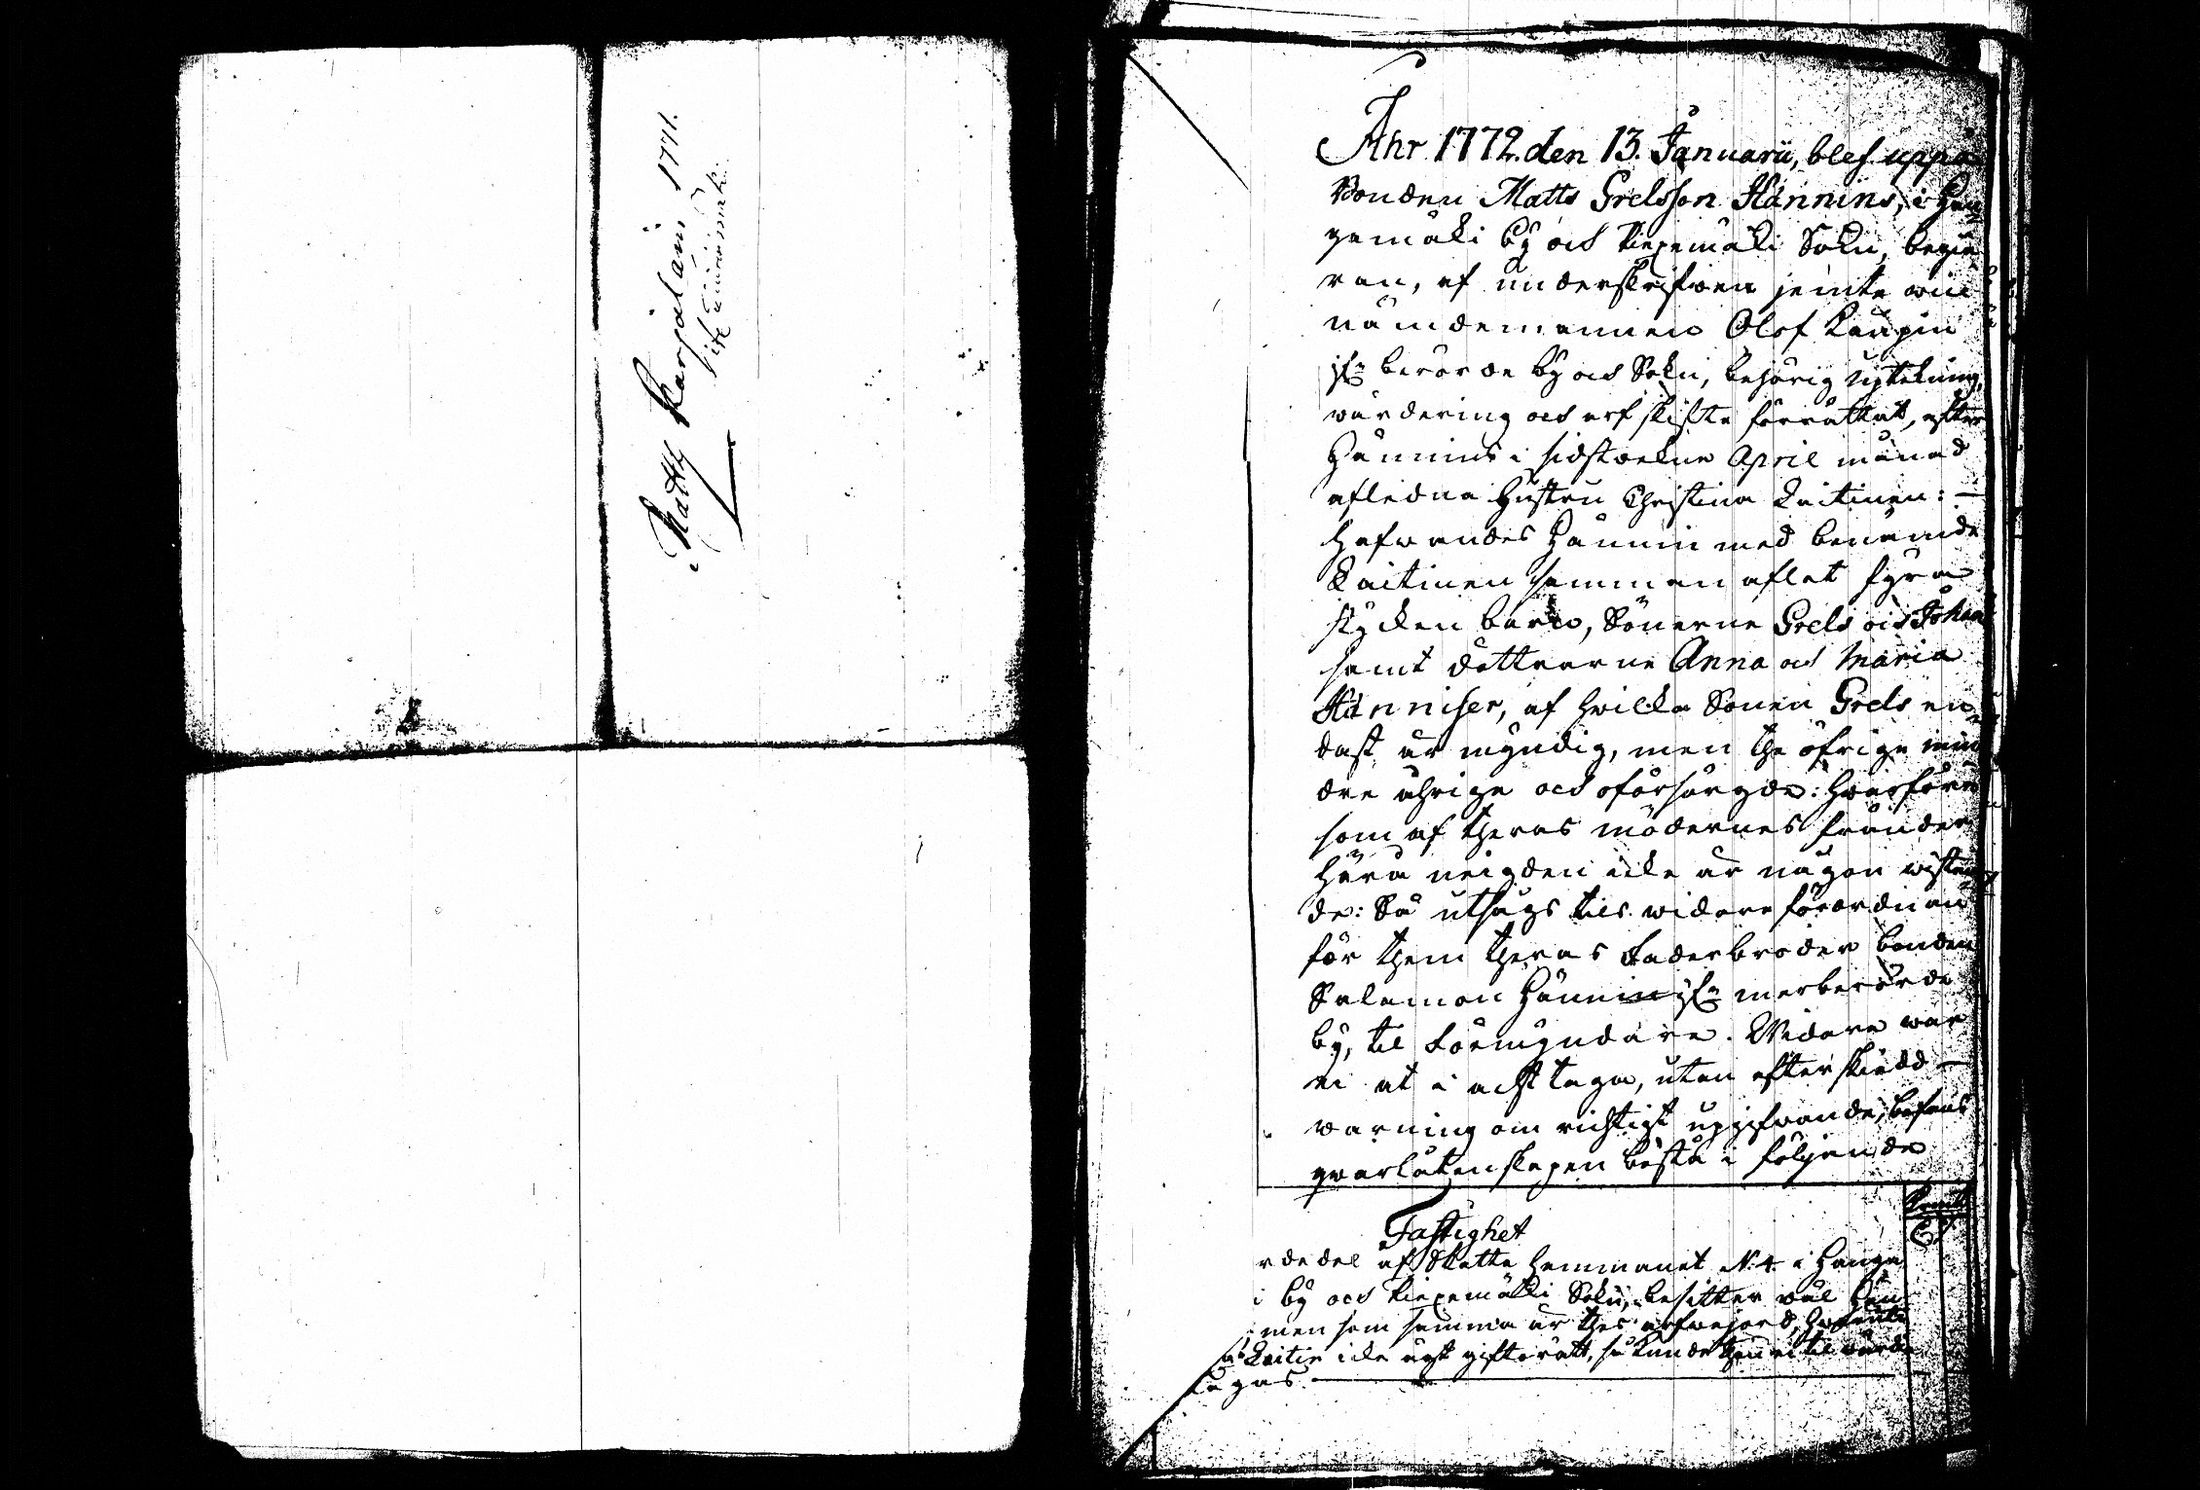 Matts Karjalain 1771.
Åhr 1772. den 13. Januarii, blef uppå
Bonden Matts Grelsson Hännins, i Han
gamäki by och Piexemäki Sokn, begiä
ran, af underskrifven jemte
nämdemannen Olof Kaupin
ifrån berörde by och Sokn, behörig upteckning,
värdering och arfskifte förrättat, efter
Hännins i sidstvekne April månad
afledna hustru Christina Laitinen: —
hafvandes Hännin med benämde
Laitinen samman aflat fyra
stycken barn, Sönerne Grels och Johan
samt döttrarne Anna och Maria
Hänniser, af hvilka Sonen Grels en
dast är myndig, men the öfrige min
dre åhrige och oförsörgde: hvarföre
som af theras mödernes fränder
här å neigden icke är någon vistan
de: Så utsågs til vidare förordnan
för them theras Faderbroder bonden
Salamon Hännin ifrån merberörde
by, til Förmyndare. Widare var
ei at i acht taga, utan efter skiedd —
varning om richtigt upgifvande, befans
qvarlåtenskapen bestå i följande
Fastighet
rdedel af Skatte Hemmanet N:4 i Hanga
i by och Piexemäki Sokn, besitter väl Hän
men som samma är thes arfvejord, hvaruti
Laitin icke ägt giftorätt, så kunde then ei til värde
tagas.